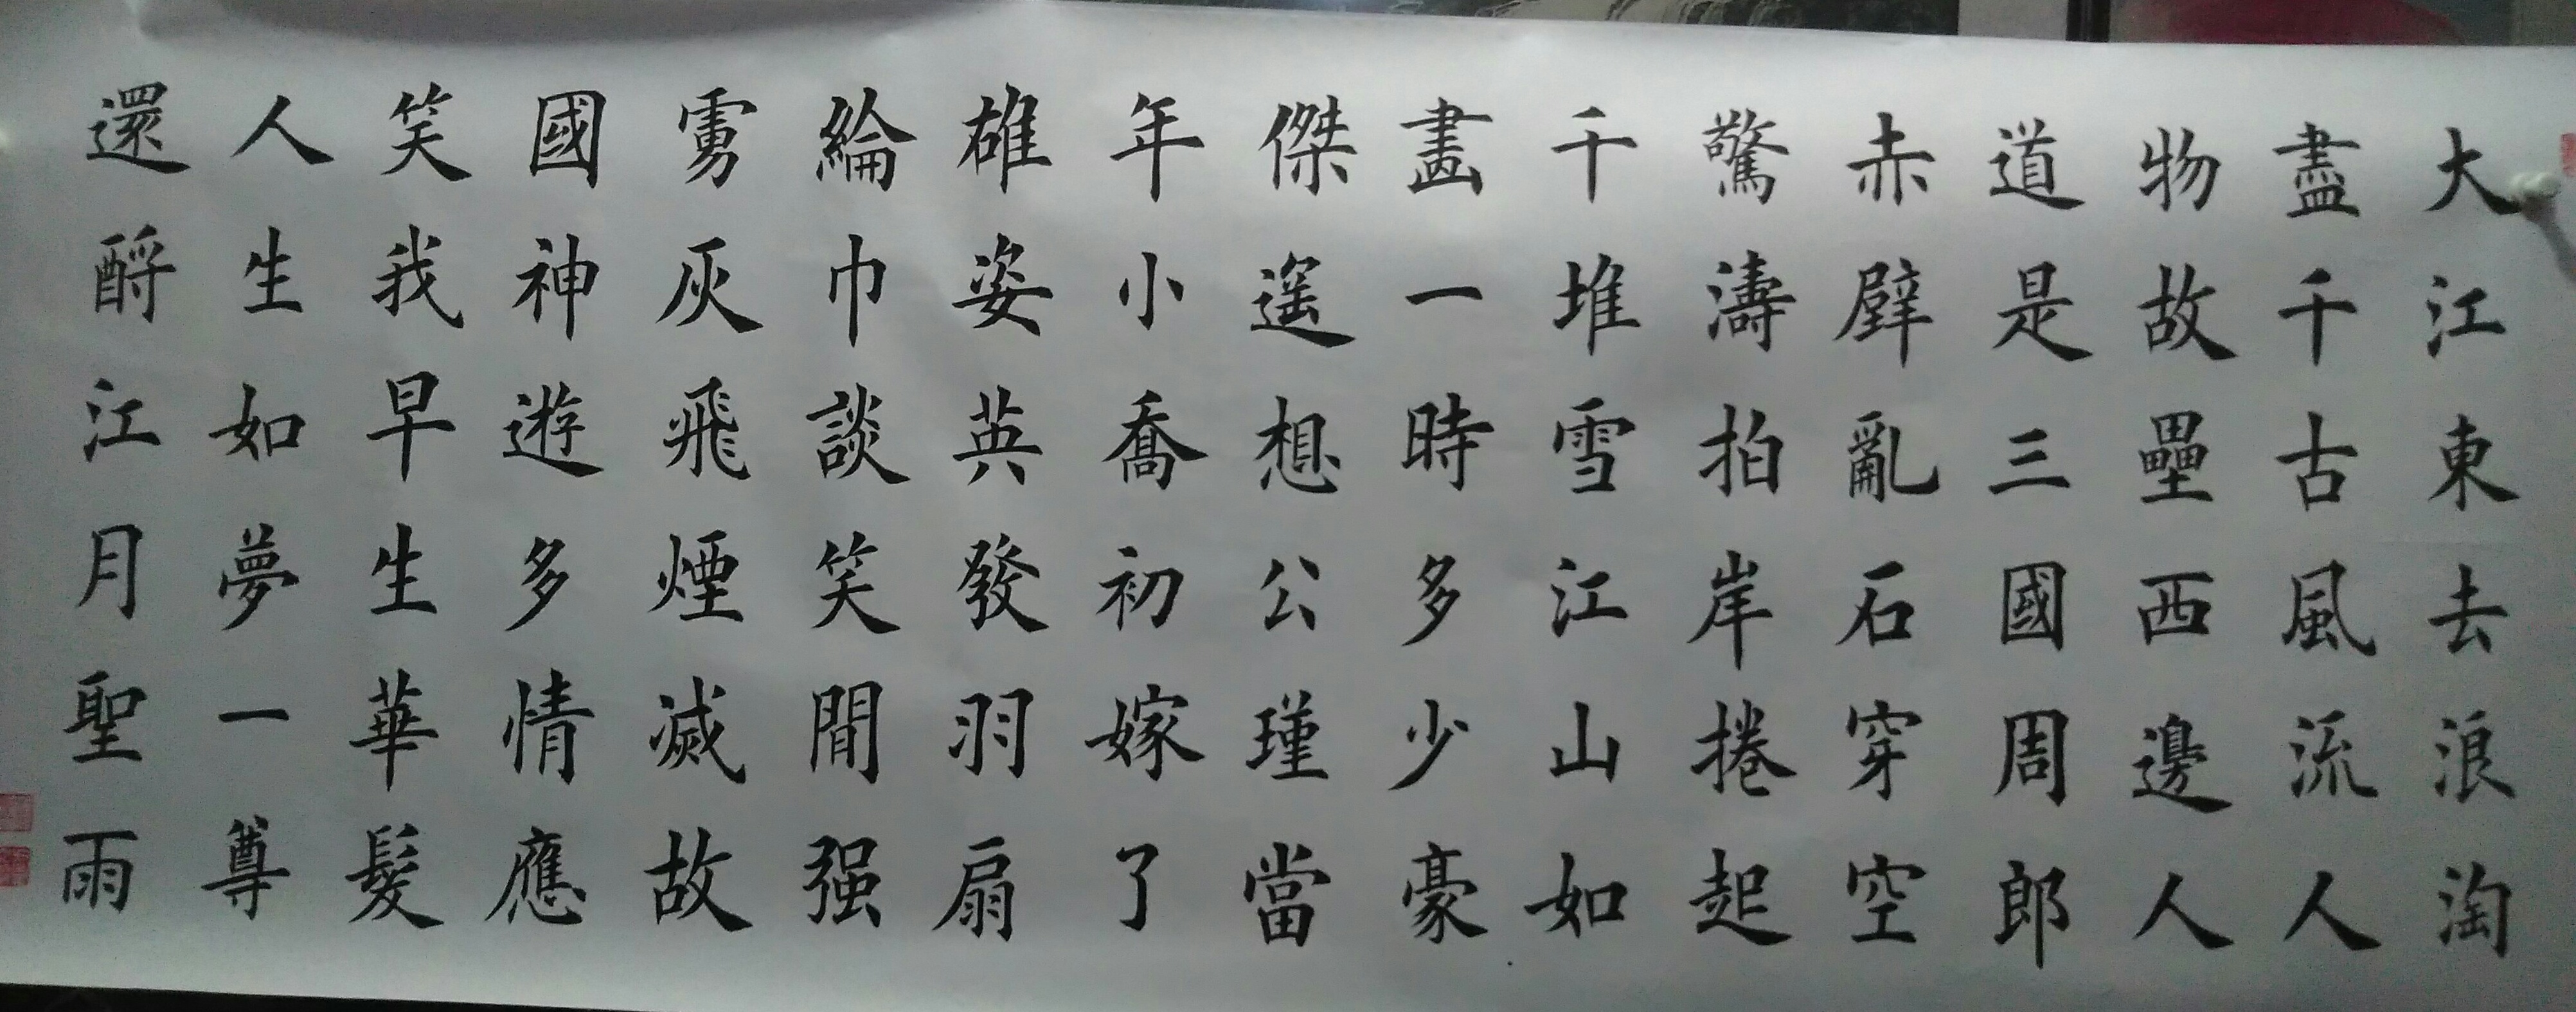 大江東去浪淘
盡千古風流人
物故壘西邊人
道是三國周郎
赤壁亂石穿空
驚濤拍岸捲起
千堆雪江山如
畫一時多少豪
傑遥想公瑾當
年小喬初嫁了
雄姿英發羽扇
綸巾談笑間强
虜灰飛煙滅故
國神遊多情應
笑我早生華髮
人生如夢一尊
還酹江月聖雨